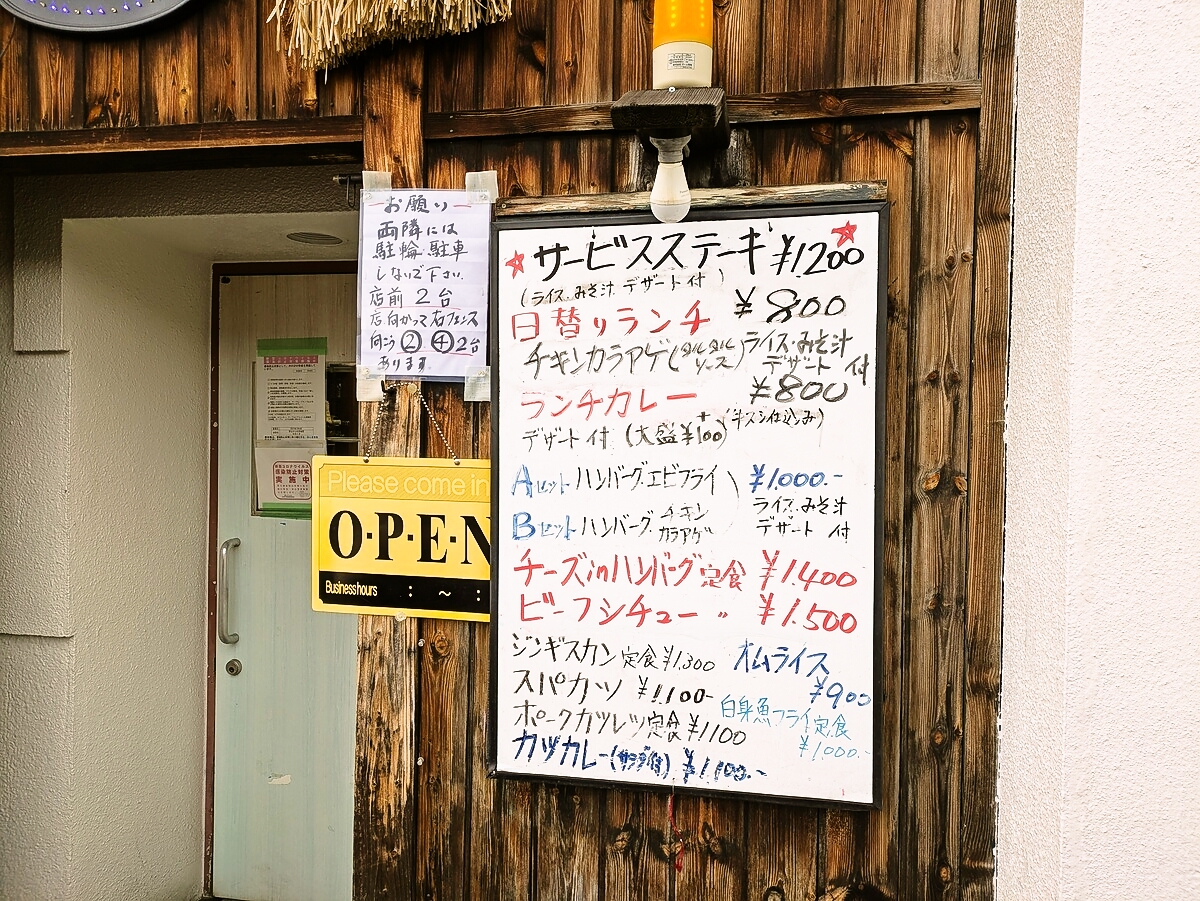 お願い
両隣には
駐輪・駐車
しないで下さい.
店前 2台
店向かって右フェンス
向こう ② ④ 2台
あります.
Please come in
O・P・E・N
Business hours : ~ :
新型コロナウイルス
感染防止対策
実施中
★サービスステーキ ¥1200★
(ライス.みそ汁 デザート付)
日替りランチ ¥800
チキンカラアゲ(タルタルソース) ライス・みそ汁
デザート 付
ランチカレー ¥800
デザート付 (大盛+¥100) (牛スジ仕込み)
Aセット ハンバーグ.エビフライ ¥1.000.-
Bセット ハンバーグ.チキンカラアゲ ライス.みそ汁
デザート 付
チーズinハンバーグ定食 ¥1.400
ビーフシチュー 〃 ¥1.500
ジンギスカン定食 ¥1.300
オムライス
¥900
スパカツ ¥1.100-
ポークカツレツ定食 ¥1100
白身魚フライ定食
¥1,000.-
カツカレー(サラダ付) ¥1.100.-